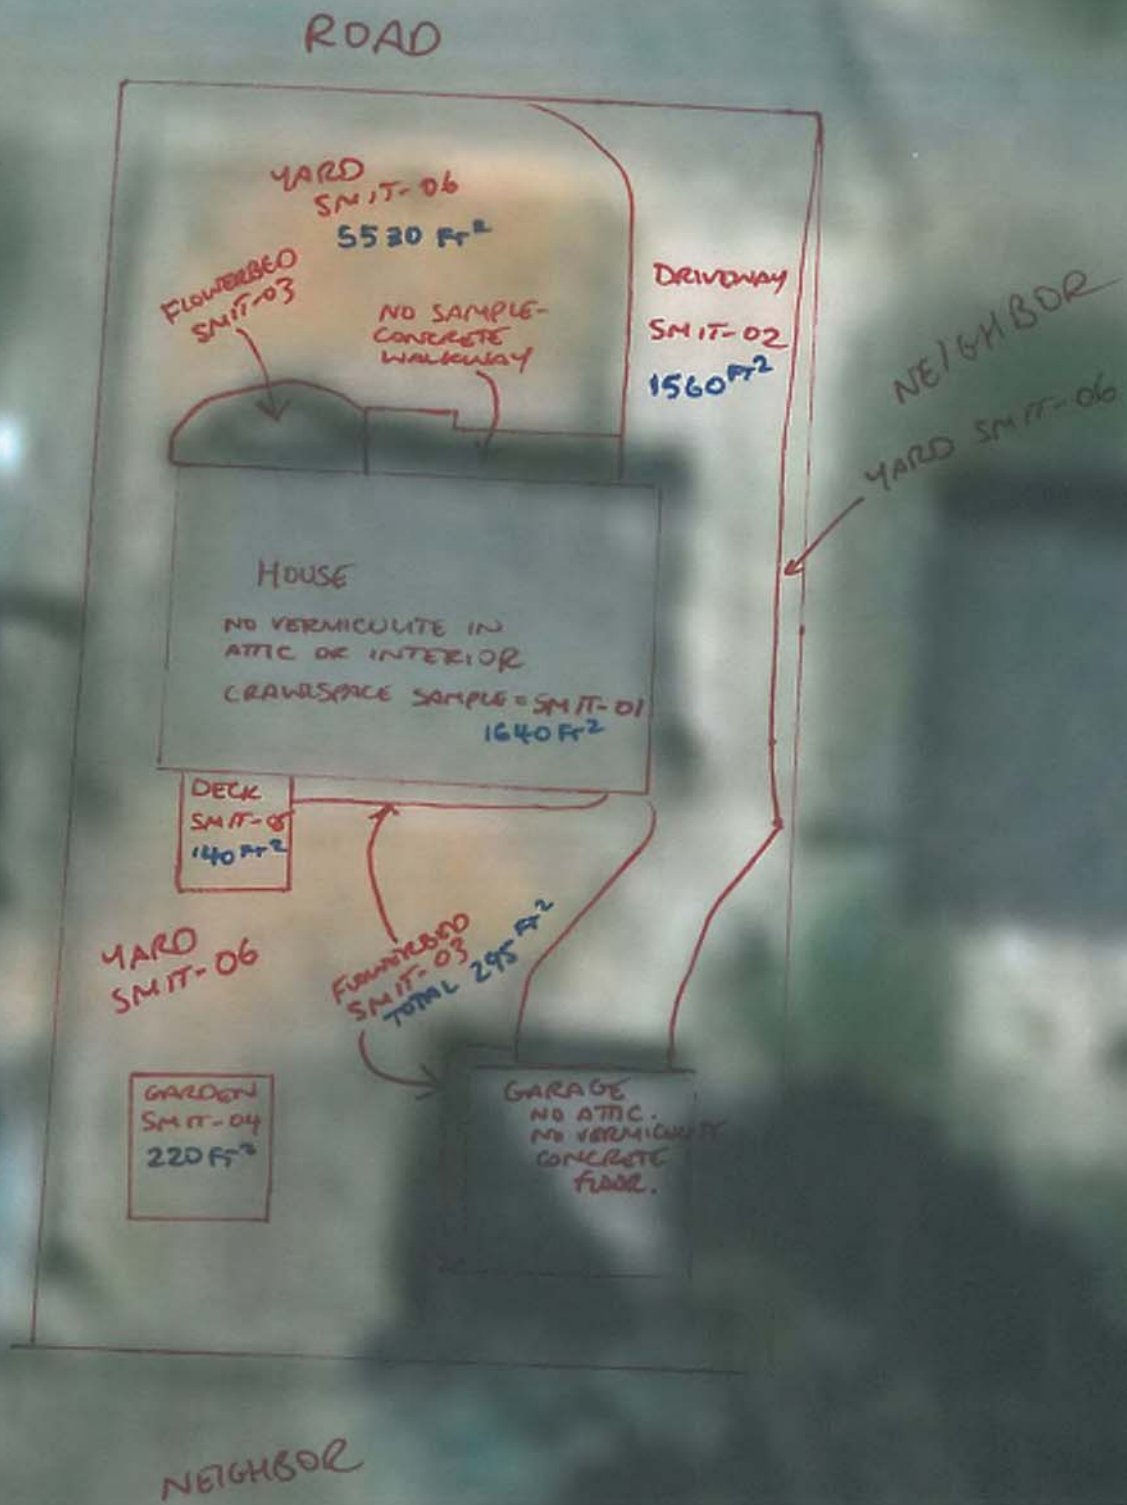 ROAD
YARD
SMIT-06
5530 FT²
FLOWERBED
SMIT-03
NO SAMPLE-
CONCRETE
WALKWAY
DRIVEWAY
SMIT-02
1560 FT²
NEIGHBOR
YARD SMIT-06
HOUSE
NO VERMICULITE IN
ATTIC OR INTERIOR
CRAWLSPACE SAMPLE = SMIT-01
1640 FT²
DECK
SMIT-05
140 FT²
YARD
SMIT-06
FLOWERBED
SMIT-03
TOTAL 295 FT²
GARDEN
SMIT-04
220 FT²
GARAGE
NO ATTIC.
NO VERMICULITE
CONCRETE
FLOOR.
NEIGHBOR